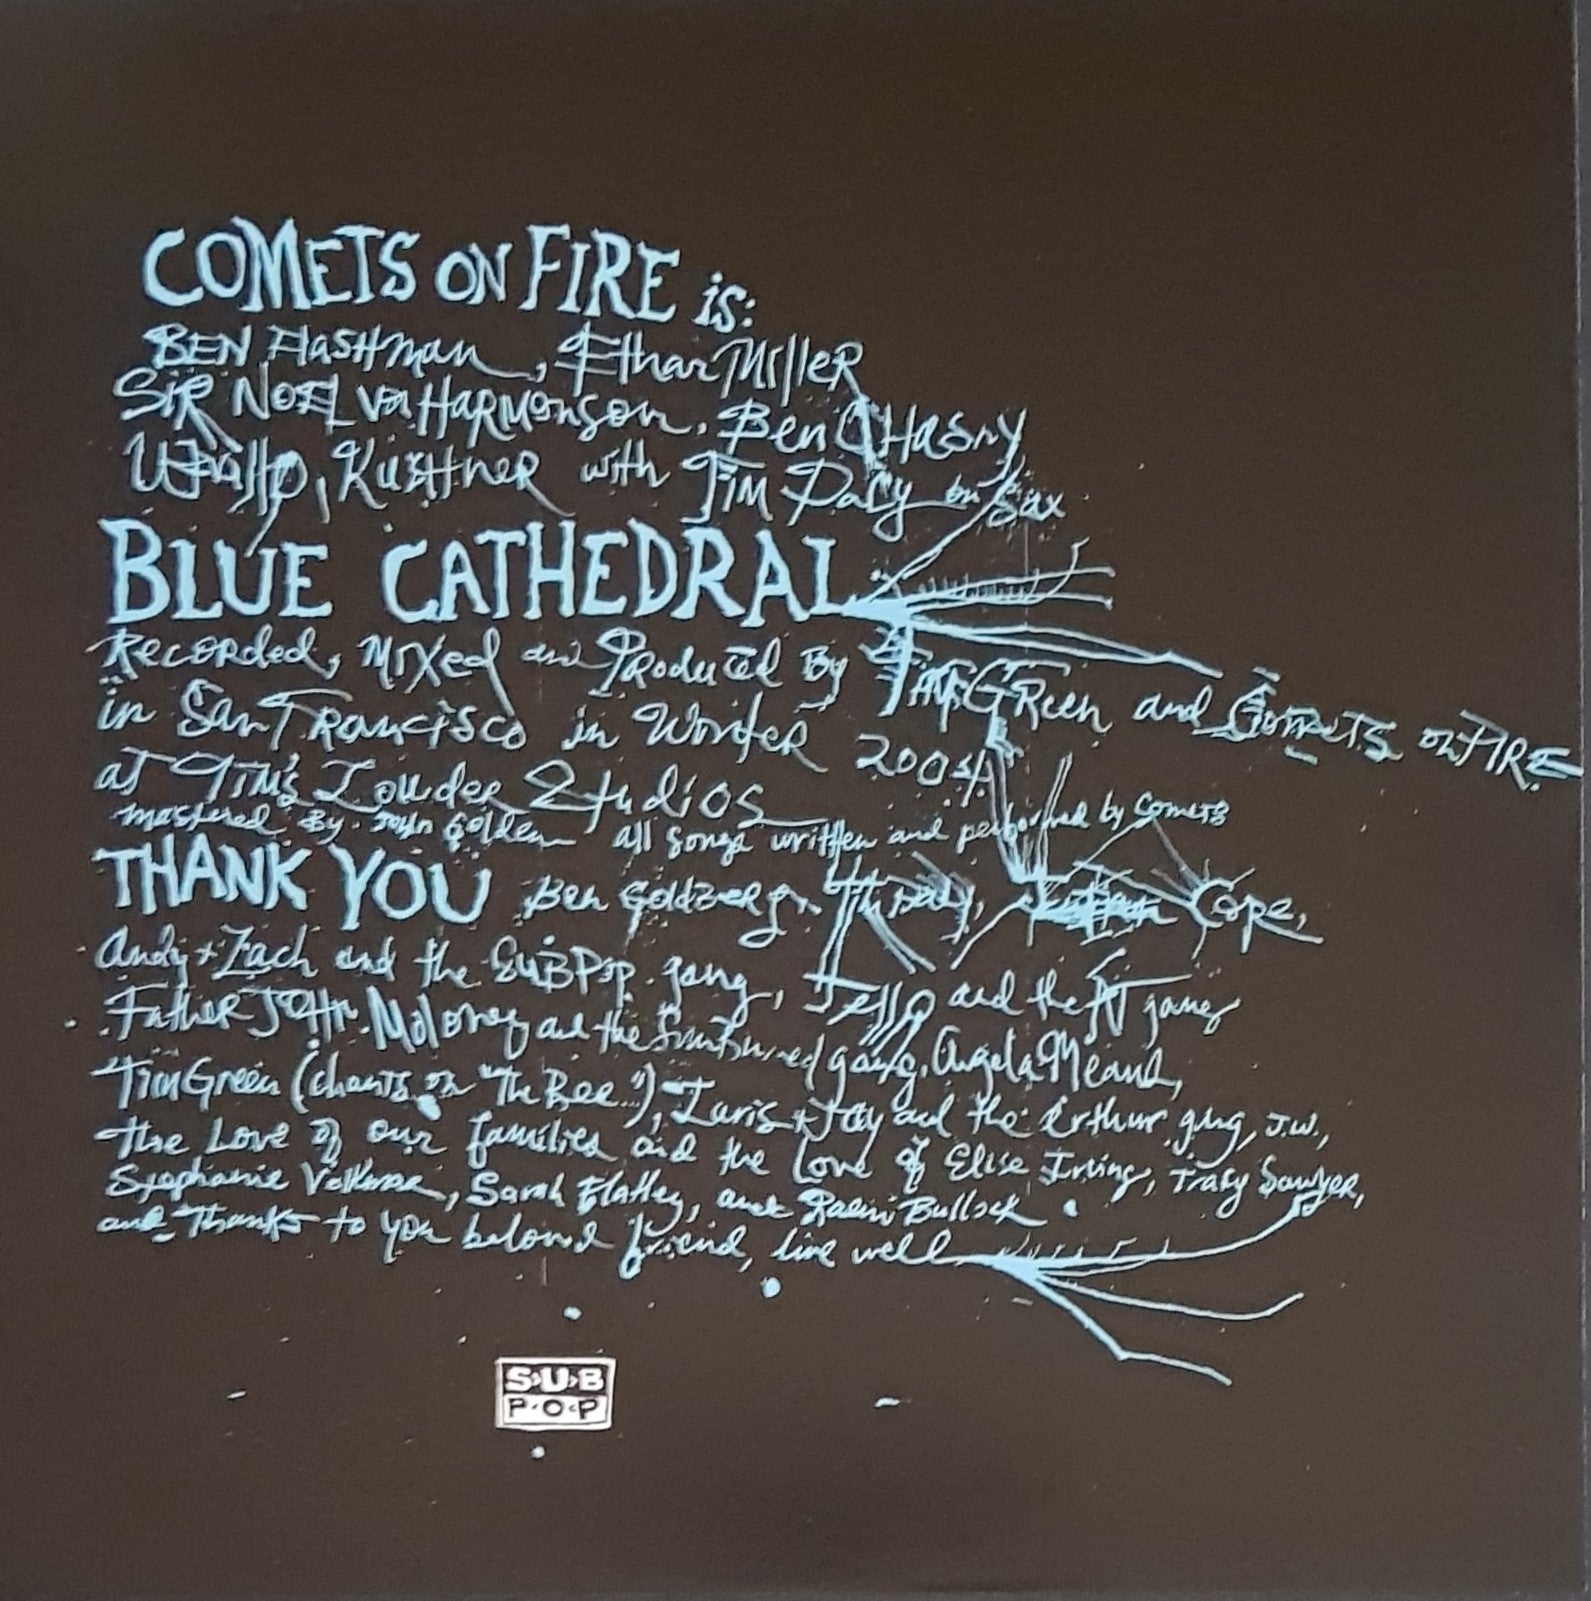 COMETS ON FIRE is:
BEN FlasHman, Ethan MilleR
SIR NOEL Von HaRMonson, Ben CHasny
Utrillo, KusHneR with Tim Daly on Sax
BLUE CATHEDRAL
Recorded, Mixed and Produced By Tim GReen and Comets on FIRE
in San Francisco in Winter 2004
at Tim's Louder Studios
mastered By John Golden all songs written and performed by Comets
THANK YOU Ben Goldberg, Tim Daly, Cope,
Andy + Zach and the SUBPop gang, Jello and the AT gang
Father John Moloney and the Sunburned gang, Angela
Tim Green (chants on "The Bee"), Laris + Jay and the Arthur gang, J.W.,
the Love of our families and the Love of Elise Irving, Tracy Sawyer,
Stephanie Volkmar, Sarah Flatley, and Bullock
and Thanks to you beloved friend, live well
SUB
POP